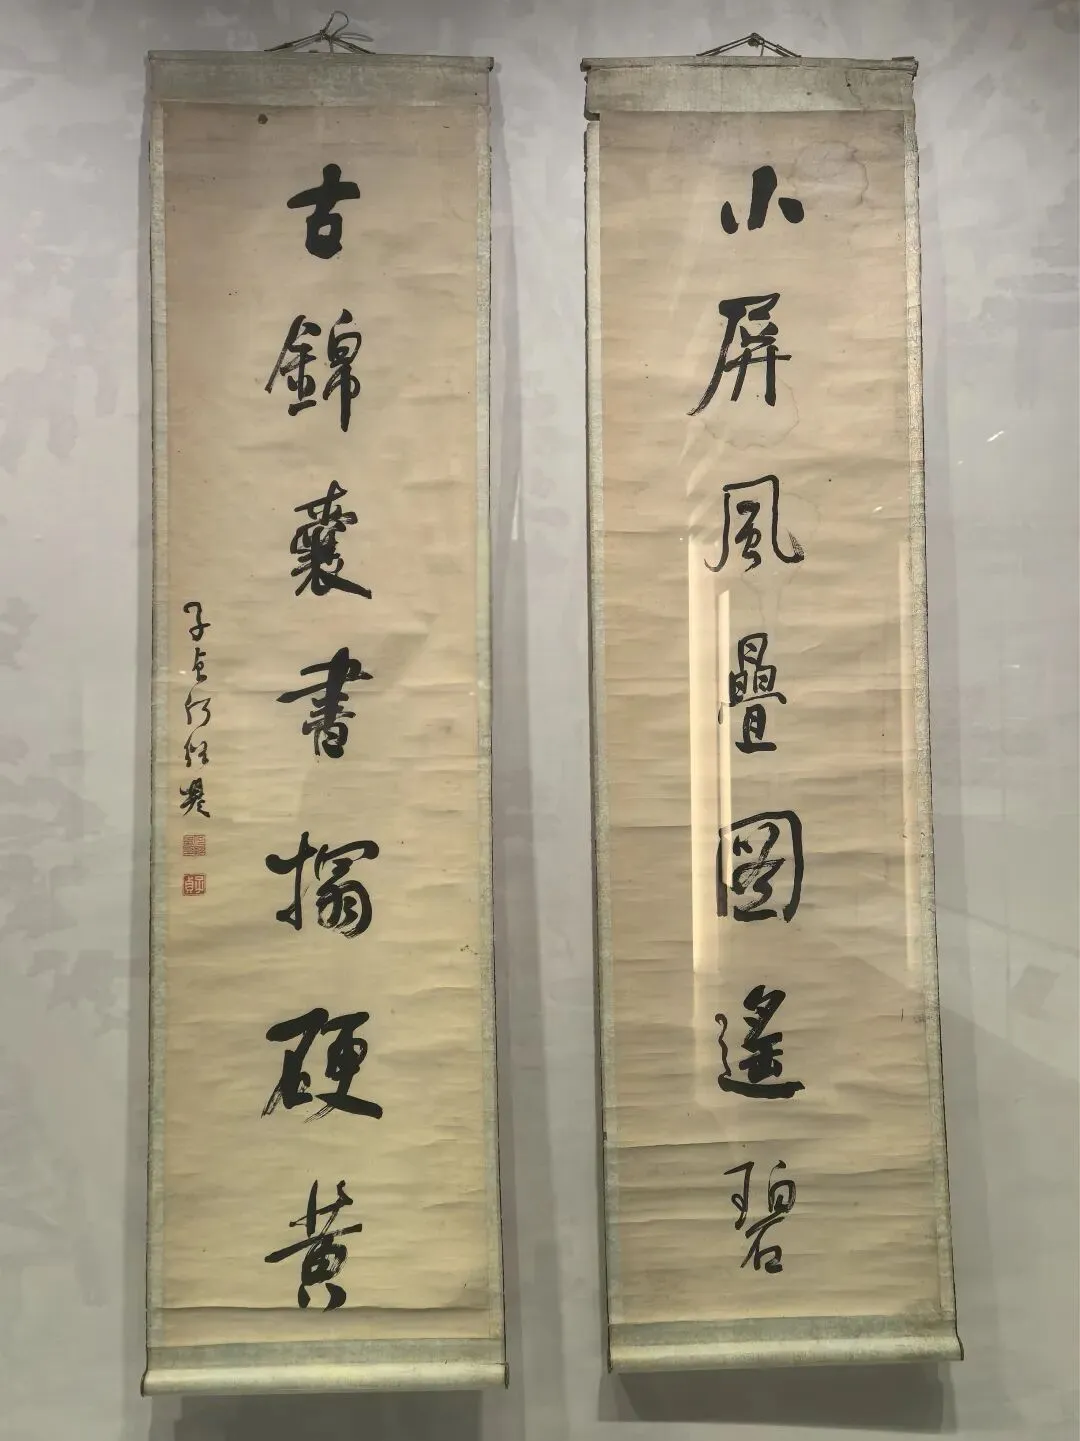 小屏風疊圖遙碧
古錦囊書搨硬黃
子貞何紹基
子貞